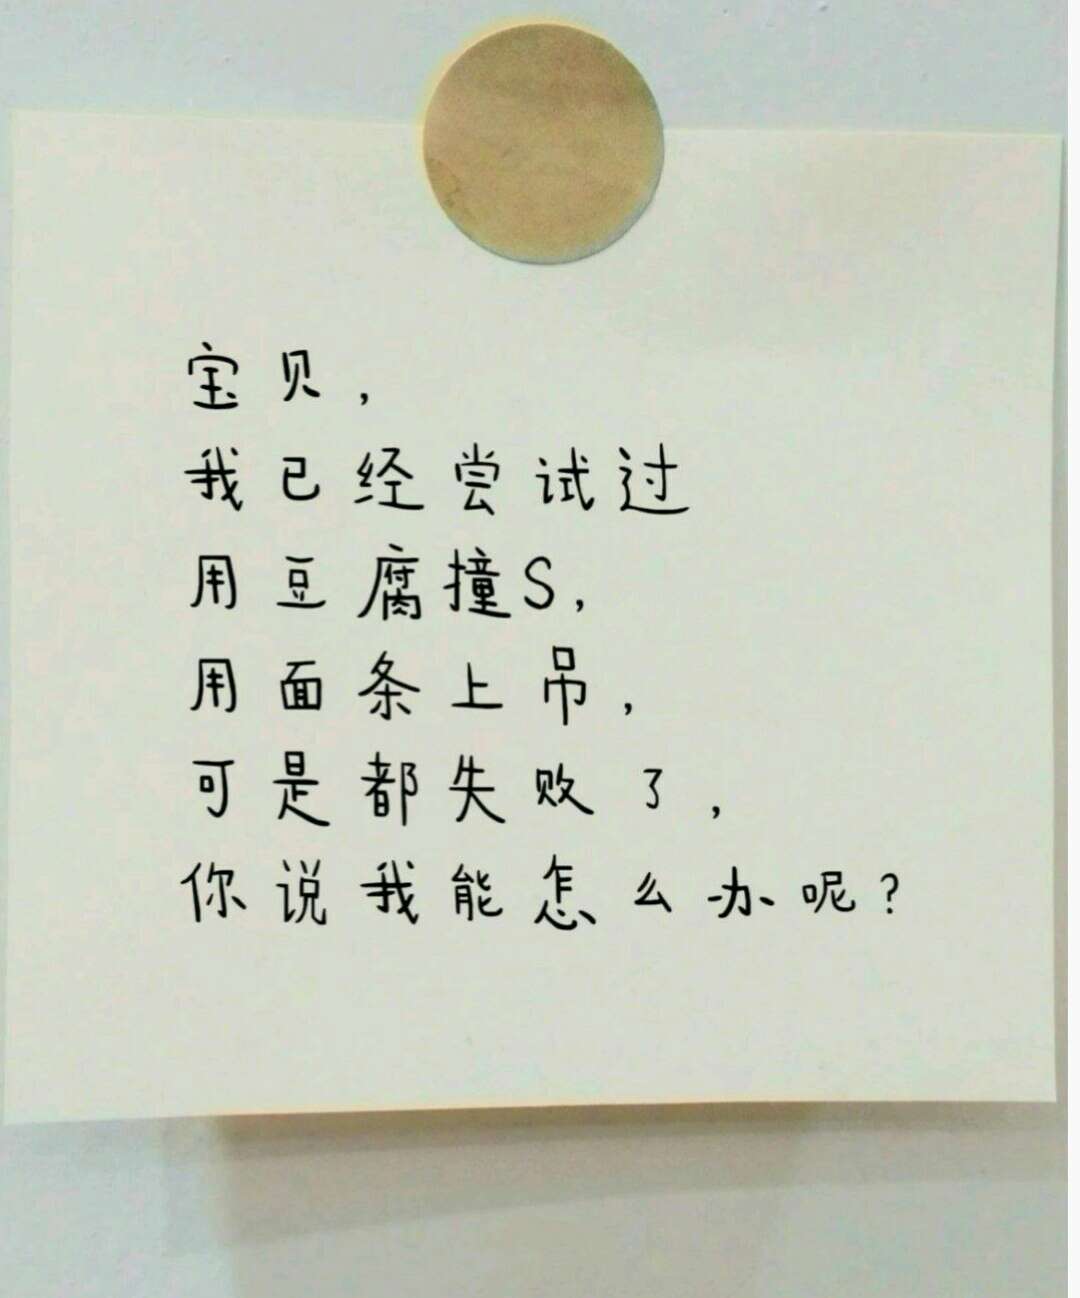 宝贝，
我已经尝试过
用豆腐撞S，
用面条上吊，
可是都失败了，
你说我能怎么办呢？